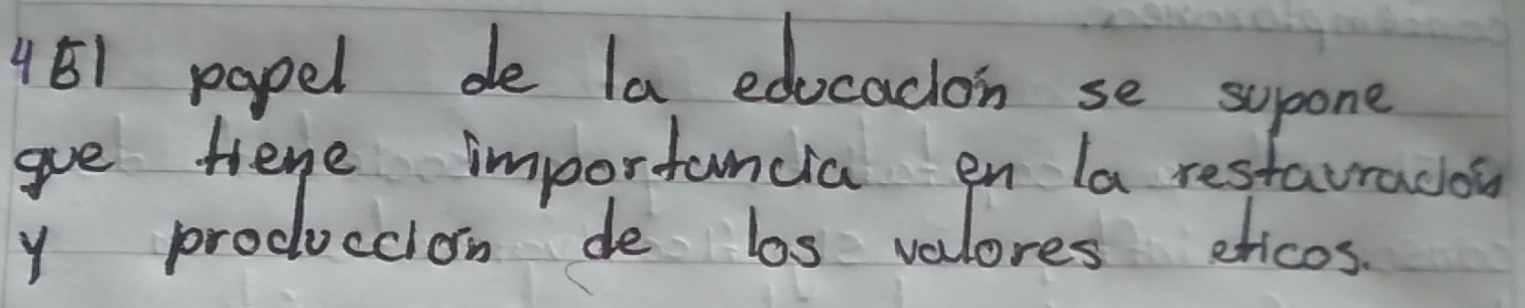 4 El papel de la educación se supone
que tiene importancia en la restauración
y producción de los valores eticos.